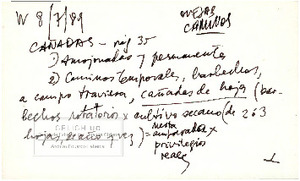 W 8/7/89
OVEJAS
CAMINOS
CAÑADAS - pág 35
1) Amojonadas y permanentes
2) Caminos temporales, barbechos,
a campo traviesa, cañadas de hoja (bar-
bechos rotatorio x cultivo secano (de 2 ó 3
hojas
amparados x
privilegios
reales